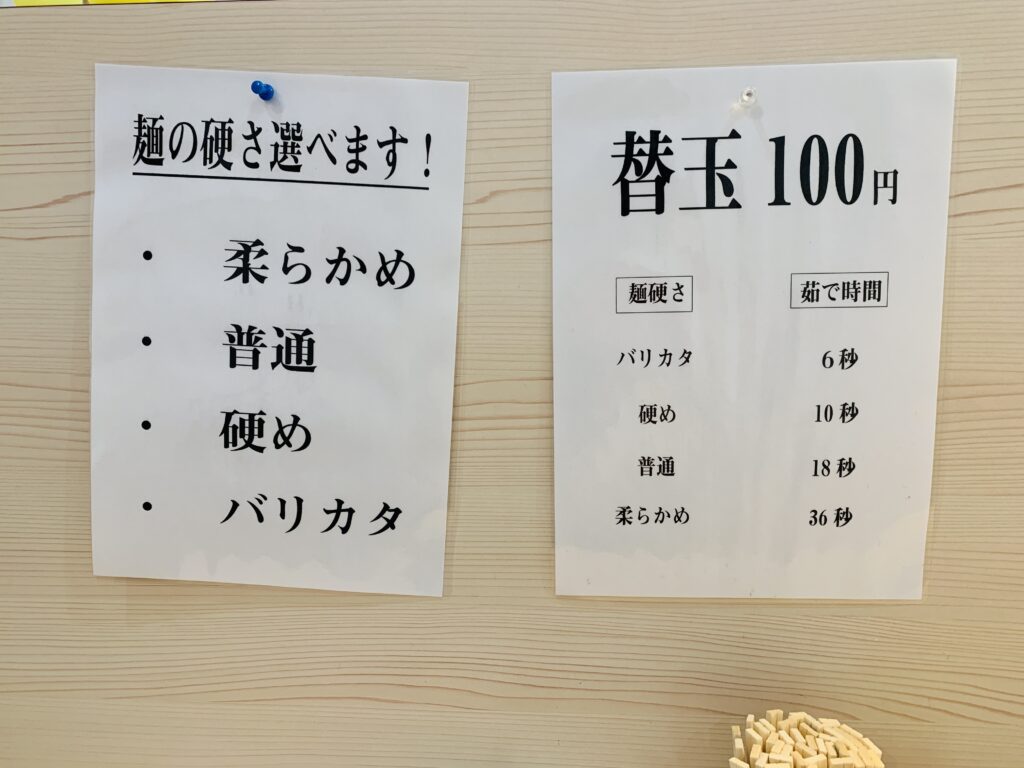 麺の硬さ選べます！
・ 柔らかめ
・ 普通
・ 硬め
・ バリカタ
替玉 100円
麺硬さ 茹で時間
バリカタ 6秒
硬め 10秒
普通 18秒
柔らかめ 36秒